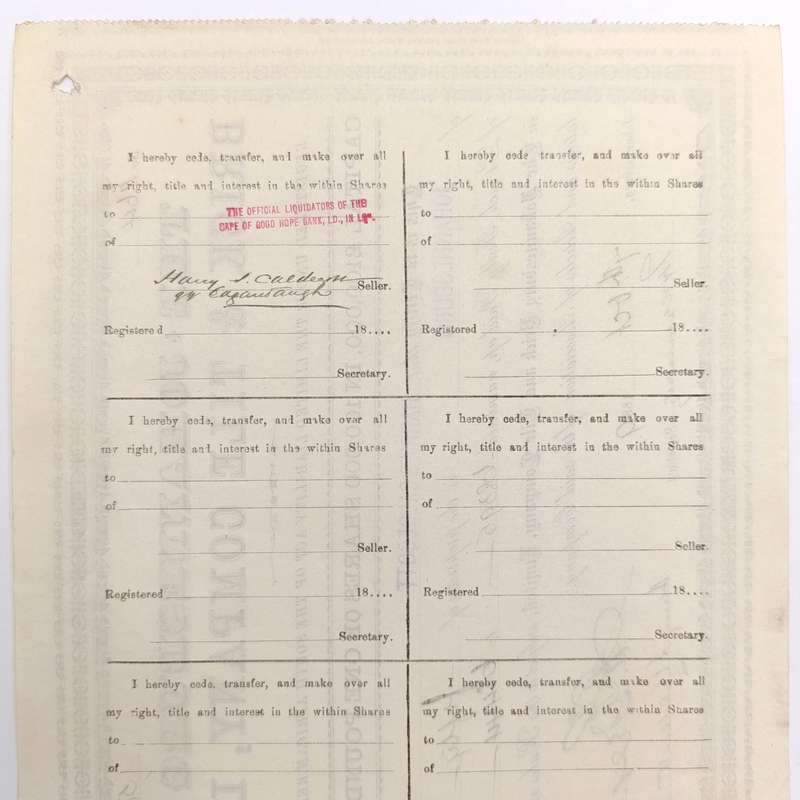 I hereby cede, transfer, and make over all
my right, title and interest in the within Shares
to
THE OFFICIAL LIQUIDATORS OF THE
CAPE OF GOOD HOPE BANK, LD., IN LQN.
of
Harry S. Caldecott
Seller.
Registered 18....
Secretary.
I hereby cede transfer, and make over all
my right, title and interest in the within Shares
to
of
Seller.
Registered 18....
Secretary.
I hereby cede, transfer, and make over all
my right, title and interest in the within Shares
to
of
Seller.
Registered 18....
Secretary.
I hereby cede, transfer, and make over all
my right, title and interest in the within Shares
to
of
Seller.
Registered 18....
Secretary.
I hereby cede, transfer, and make over all
my right, title and interest in the within Shares
to
of
I hereby cede, transfer, and make over all
my right, title and interest in the within Shares
to
of